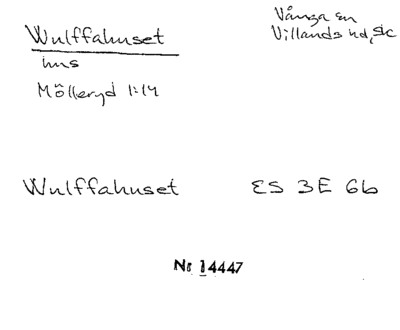 Wulffahuset
hus
Mölleryd 1:14
Vånga sn
Villands hd, Sk
Wulffahuset ES 3E 6b
Nr 14447